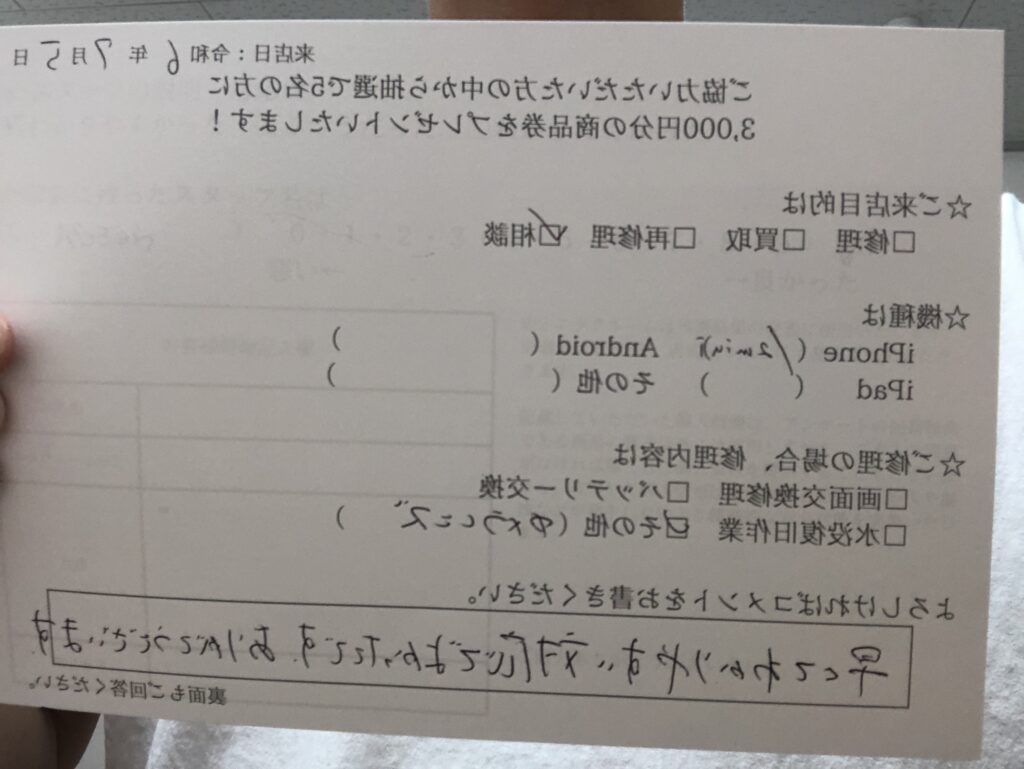 来店日：令和 6 年 7 月 5 日
ご協力いただいた方の中から抽選で5名の方に
3,000円分の商品券をプレゼントいたします！
☆ご来店目的は
□修理 □買取 □再修理 ☑相談
☆機種は
iPhone ( 12mini ) Android ( )
iPad ( ) その他 ( )
☆ご修理の場合、修理内容は
□画面交換修理 □バッテリー交換
□水没復旧作業 ☑その他 ( )
よろしければコメントをお書きください。
早くてわかりやすい対応でよかったです。ありがとうございます
裏面もご回答ください。